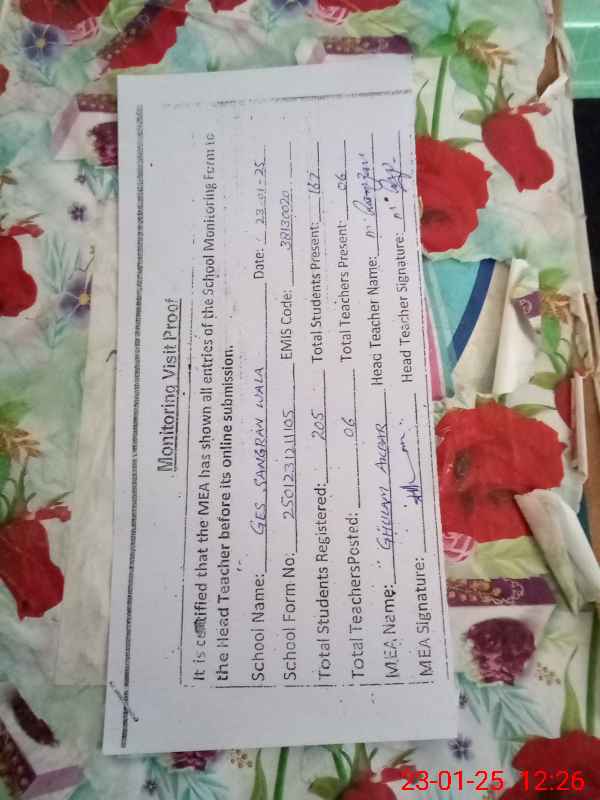 Monitoring Visit Proof
It is certified that the MEA has shown all entries of the School Monitoring Form to
the Head Teacher before its online submission.
School Name: GES SANGRAN WALA Date: 23-01-25
School Form No: 2501231211105 EMIS Code: 32130020
Total Students Registered: 205 Total Students Present: 167
Total TeachersPosted: 06 Total Teachers Present: 06
MEA Name: GHULAM AKBAR Head Teacher Name: M. Ramzan
MEA Signature: Head Teacher Signature:
23-01-25 12:26